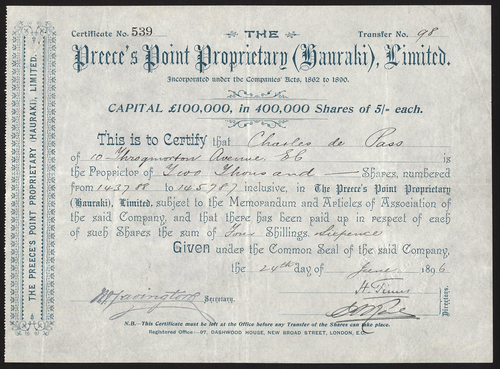 THE PREECE'S POINT PROPRIETARY (HAURAKI), LIMITED.
Certificate No. 539
THE
Transfer No. 98
Preece's Point Proprietary (Hauraki), Limited.
Incorporated under the Companies' Acts, 1862 to 1890.
CAPITAL £100,000, in 400,000 Shares of 5/- each.
This is to Certify that Charles de Pass
of 10 Throgmorton Avenue EC is
the Proprietor of Two Thousand Shares, numbered
from 143788 to 145787 inclusive, in The Preece's Point Proprietary
(Hauraki), Limited, subject to the Memorandum and Articles of Association of
the said Company, and that there has been paid up in respect of each
of such Shares the sum of Four Shillings Sixpence
Given under the Common Seal of the said Company,
the 24th day of June 1896
Secretary.
Directors.
N.B.—This Certificate must be left at the Office before any Transfer of the Shares can take place.
Registered Office—97, DASHWOOD HOUSE, NEW BROAD STREET, LONDON, E.C.